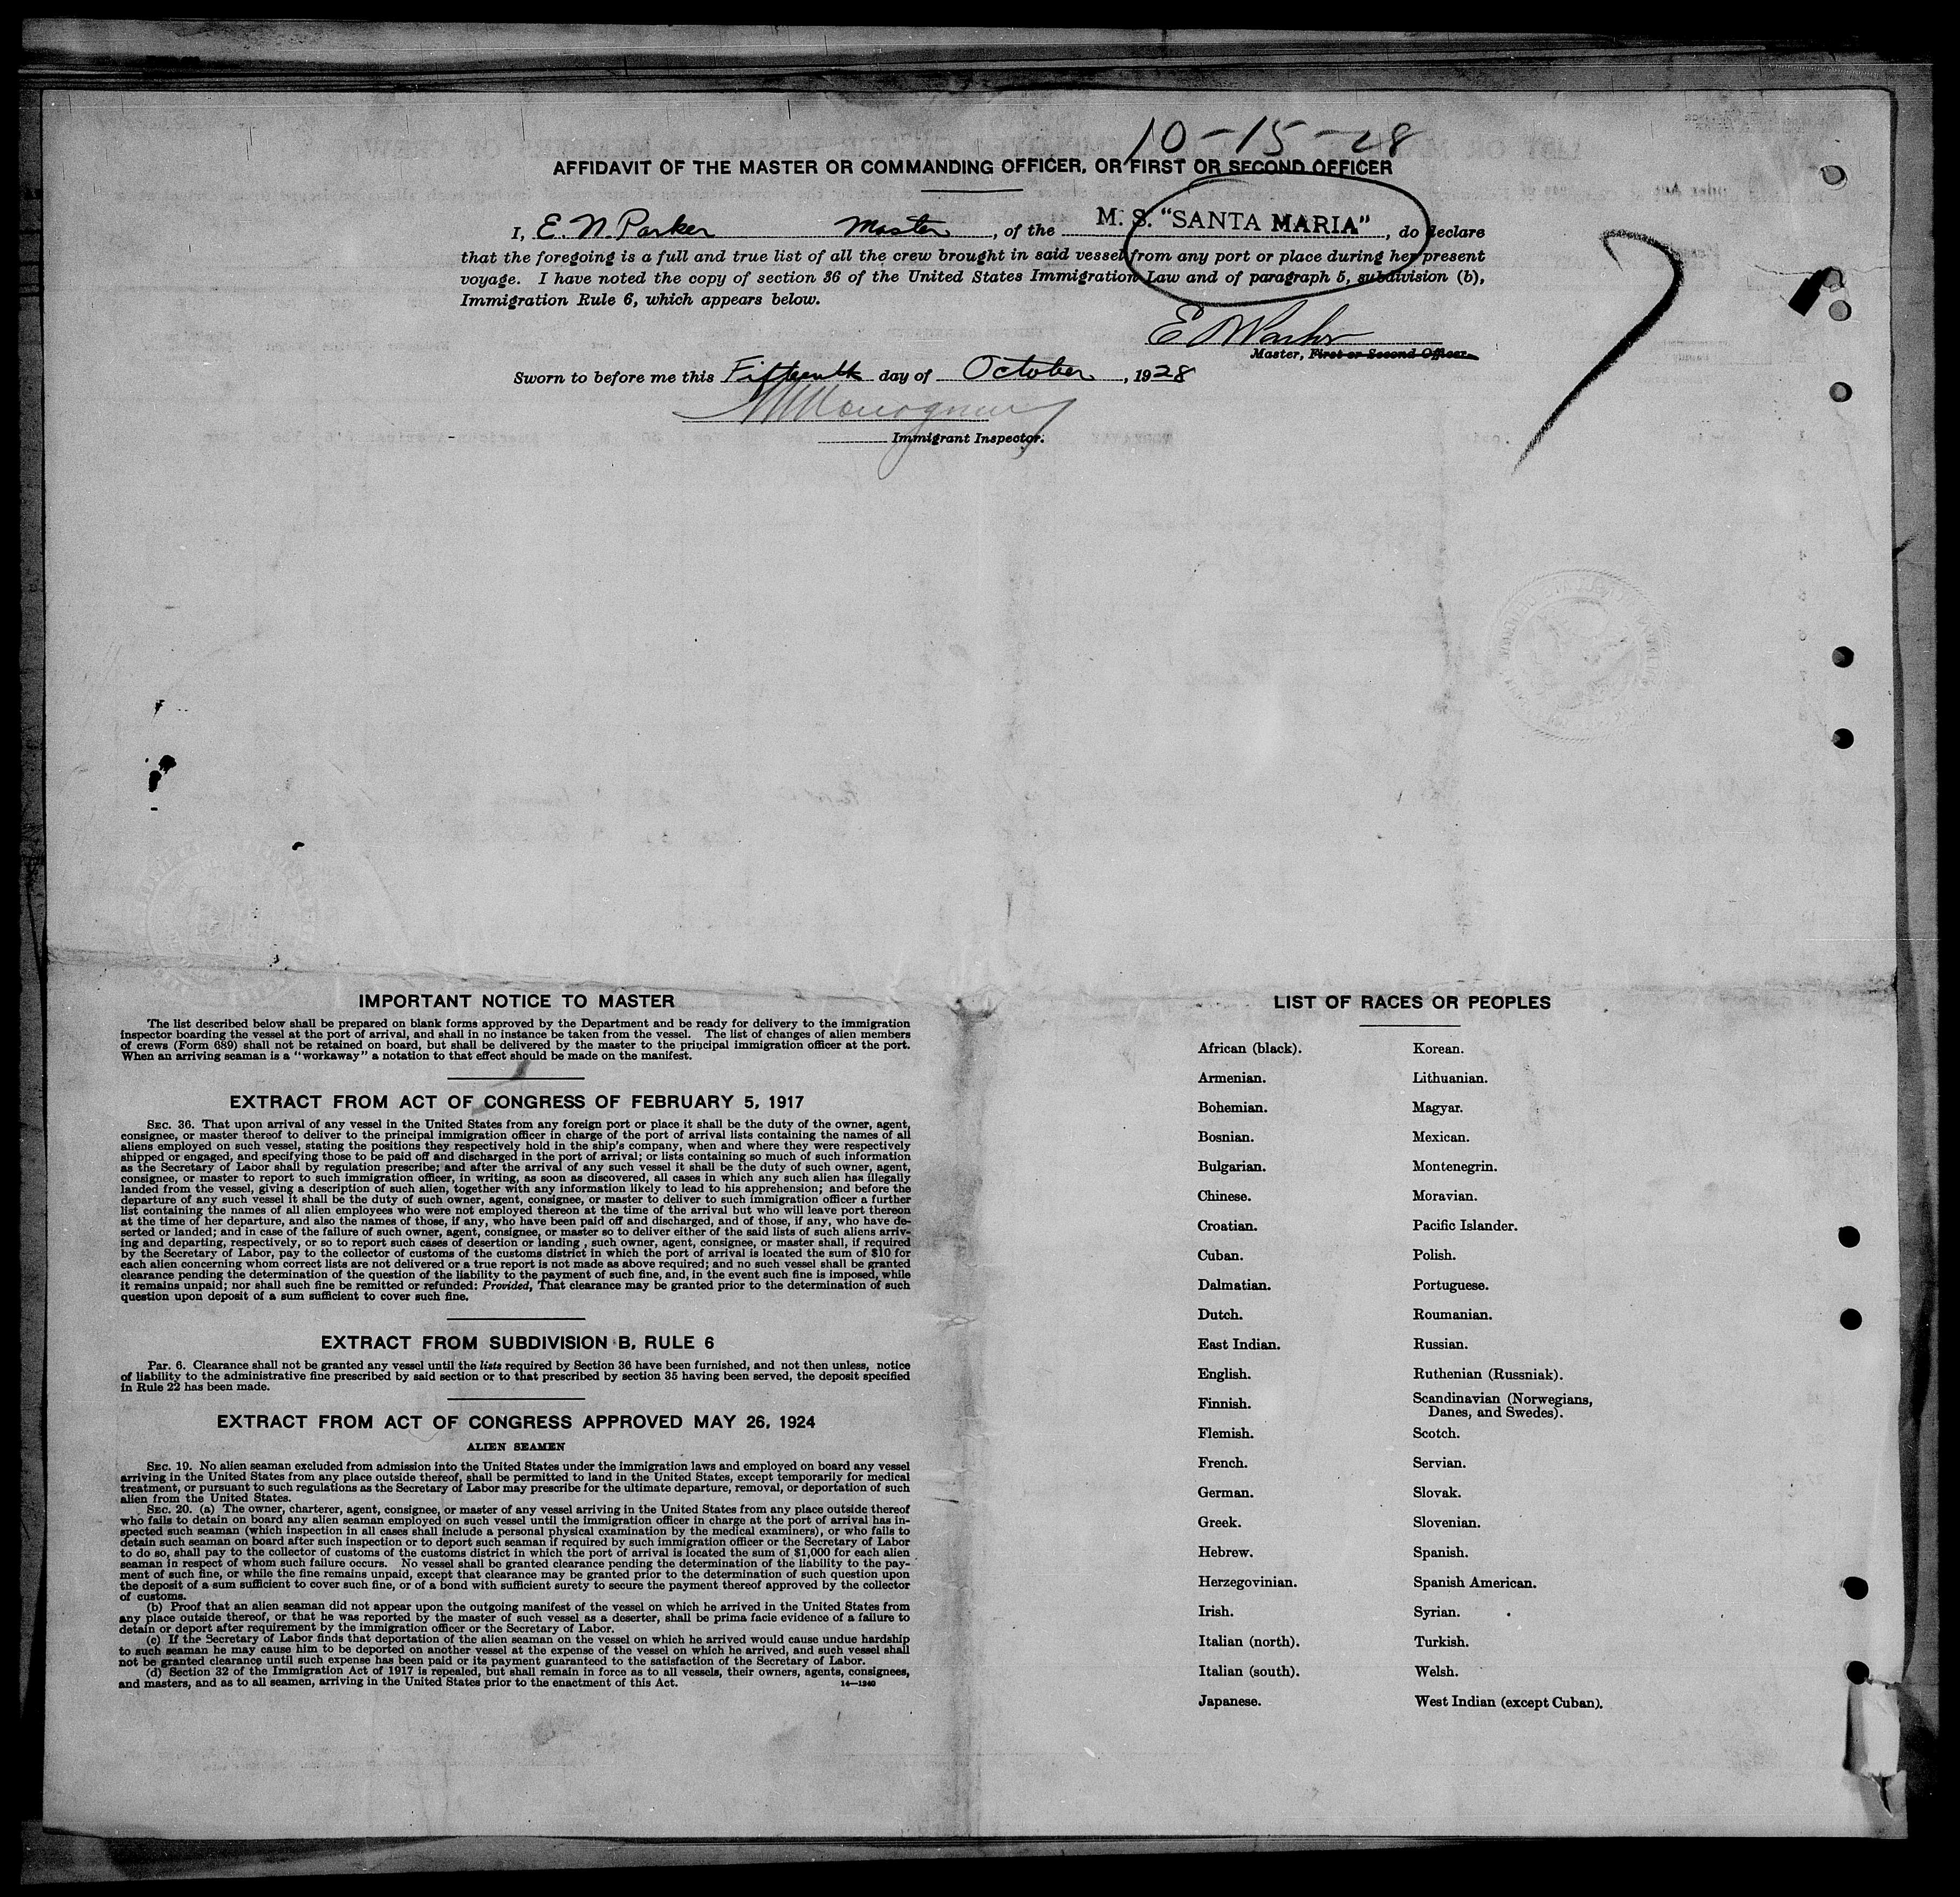 10-15-28
AFFIDAVIT OF THE MASTER OR COMMANDING OFFICER, OR FIRST OR SECOND OFFICER
I, E. N. Parker Master, of the M. S. "SANTA MARIA", do declare
that the foregoing is a full and true list of all the crew brought in said vessel from any port or place during her present
voyage. I have noted the copy of section 36 of the United States Immigration Law and of paragraph 5, subdivision (b),
Immigration Rule 6, which appears below.
7
E N Parker
Master, First or Second Officer.
Sworn to before me this Fifteenth day of October, 1928
Immigrant Inspector.
IMPORTANT NOTICE TO MASTER
The list described below shall be prepared on blank forms approved by the Department and be ready for delivery to the immigration
inspector boarding the vessel at the port of arrival, and shall in no instance be taken from the vessel. The list of changes of alien members
of crews (Form 689) shall not be retained on board, but shall be delivered by the master to the principal immigration officer at the port.
When an arriving seaman is a "workaway" a notation to that effect should be made on the manifest.
EXTRACT FROM ACT OF CONGRESS OF FEBRUARY 5, 1917
SEC. 36. That upon arrival of any vessel in the United States from any foreign port or place it shall be the duty of the owner, agent,
consignee, or master thereof to deliver to the principal immigration officer in charge of the port of arrival lists containing the names of all
aliens employed on such vessel, stating the positions they respectively hold in the ship's company, when and where they were respectively
shipped or engaged, and specifying those to be paid off and discharged in the port of arrival; or lists containing so much of such information
as the Secretary of Labor shall by regulation prescribe; and after the arrival of any such vessel it shall be the duty of such owner, agent,
consignee, or master to report to such immigration officer, in writing, as soon as discovered, all cases in which any such alien has illegally
landed from the vessel, giving a description of such alien, together with any information likely to lead to his apprehension; and before the
departure of any such vessel it shall be the duty of such owner, agent, consignee, or master to deliver to such immigration officer a further
list containing the names of all alien employees who were not employed thereon at the time of the arrival but who will leave port thereon
at the time of her departure, and also the names of those, if any, who have been paid off and discharged, and of those, if any, who have de-
serted or landed; and in case of the failure of such owner, agent, consignee, or master so to deliver either of the said lists of such aliens arriv-
ing and departing, respectively, or so to report such cases of desertion or landing , such owner, agent, consignee, or master shall, if required
by the Secretary of Labor, pay to the collector of customs of the customs district in which the port of arrival is located the sum of $10 for
each alien concerning whom correct lists are not delivered or a true report is not made as above required; and no such vessel shall be granted
clearance pending the determination of the question of the liability to the payment of such fine, and, in the event such fine is imposed, while
it remains unpaid; nor shall such fine be remitted or refunded: Provided, That clearance may be granted prior to the determination of such
question upon deposit of a sum sufficient to cover such fine.
EXTRACT FROM SUBDIVISION B, RULE 6
Par. 6. Clearance shall not be granted any vessel until the lists required by Section 36 have been furnished, and not then unless, notice
of liability to the administrative fine prescribed by said section or to that prescribed by section 35 having been served, the deposit specified
in Rule 22 has been made.
EXTRACT FROM ACT OF CONGRESS APPROVED MAY 26, 1924
ALIEN SEAMEN
SEC. 19. No alien seaman excluded from admission into the United States under the immigration laws and employed on board any vessel
arriving in the United States from any place outside thereof, shall be permitted to land in the United States, except temporarily for medical
treatment, or pursuant to such regulations as the Secretary of Labor may prescribe for the ultimate departure, removal, or deportation of such
alien from the United States.
SEC. 20. (a) The owner, charterer, agent, consignee, or master of any vessel arriving in the United States from any place outside thereof
who fails to detain on board any alien seaman employed on such vessel until the immigration officer in charge at the port of arrival has in-
spected such seaman (which inspection in all cases shall include a personal physical examination by the medical examiners), or who fails to
detain such seaman on board after such inspection or to deport such seaman if required by such immigration officer or the Secretary of Labor
to do so, shall pay to the collector of customs of the customs district in which the port of arrival is located the sum of $1,000 for each alien
seaman in respect of whom such failure occurs. No vessel shall be granted clearance pending the determination of the liability to the pay-
ment of such fine, or while the fine remains unpaid, except that clearance may be granted prior to the determination of such question upon
the deposit of a sum sufficient to cover such fine, or of a bond with sufficient surety to secure the payment thereof approved by the collector
of customs.
(b) Proof that an alien seaman did not appear upon the outgoing manifest of the vessel on which he arrived in the United States from
any place outside thereof, or that he was reported by the master of such vessel as a deserter, shall be prima facie evidence of a failure to
detain or deport after requirement by the immigration officer or the Secretary of Labor.
(c) If the Secretary of Labor finds that deportation of the alien seaman on the vessel on which he arrived would cause undue hardship
to such seaman he may cause him to be deported on another vessel at the expense of the vessel on which he arrived, and such vessel shall
not be granted clearance until such expense has been paid or its payment guaranteed to the satisfaction of the Secretary of Labor.
(d) Section 32 of the Immigration Act of 1917 is repealed, but shall remain in force as to all vessels, their owners, agents, consignees,
and masters, and as to all seamen, arriving in the United States prior to the enactment of this Act.
14—1240
LIST OF RACES OR PEOPLES
African (black). Korean.
Armenian. Lithuanian.
Bohemian. Magyar.
Bosnian. Mexican.
Bulgarian. Montenegrin.
Chinese. Moravian.
Croatian. Pacific Islander.
Cuban. Polish.
Dalmatian. Portuguese.
Dutch. Roumanian.
East Indian. Russian.
English. Ruthenian (Russniak).
Finnish. Scandinavian (Norwegians,
Danes, and Swedes).
Flemish. Scotch.
French. Servian.
German. Slovak.
Greek. Slovenian.
Hebrew. Spanish.
Herzegovinian. Spanish American.
Irish. Syrian.
Italian (north). Turkish.
Italian (south). Welsh.
Japanese. West Indian (except Cuban).